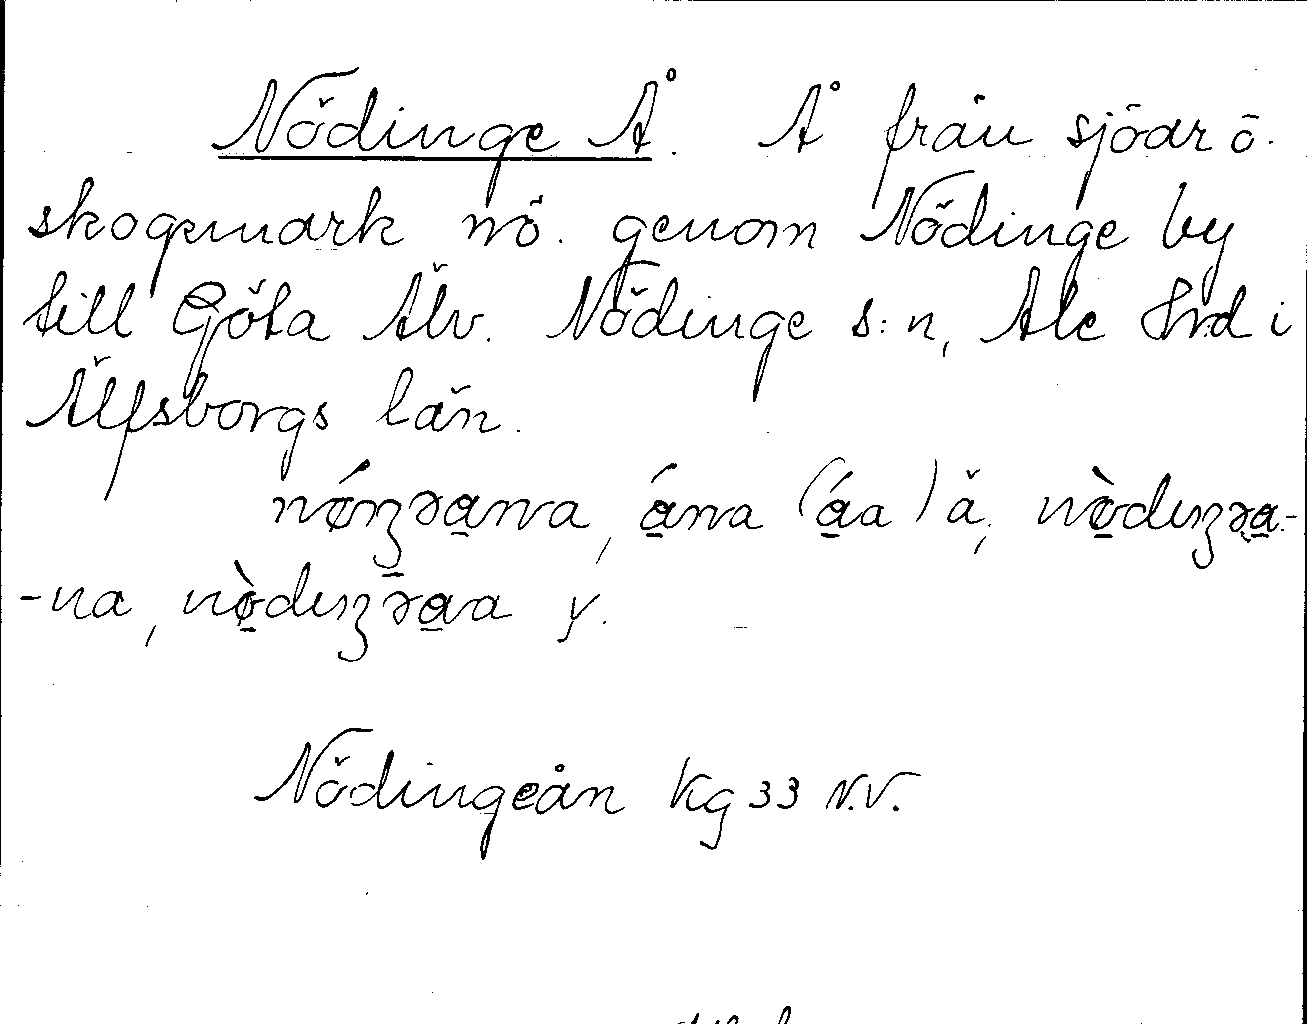 Nödinge Å. Å från sjöar ö.
skogsmark nö. genom Nödinge by
till Göta Älv. Nödinge s:n, Ale Hrd i
Älfsborgs län.
nǿŋɜa̱nna, á̱na (á̱a) ä, nø̱̀dɩŋɜəa̱-
-na, nø̱̀dɩŋɜəa̱a y.
Nödingeån Kg 33 N.V.